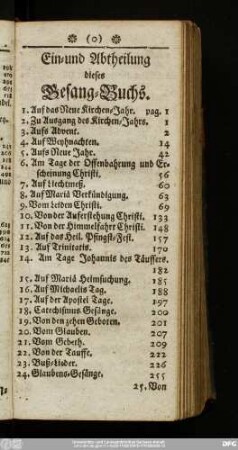 (0)
Ein-und Abtheilung
dieses
Gesang-Buchs.
1. Auf das Neue Kirchen/Jahr. pag. 1
2. Zu Ausgang des Kirchen/Jahrs. 1
3. Aufs Advent. 2
4. Auf Weyhnachten. 14
5. Aufs Neue Jahr. 42
6. Am Tage der Offenbahrung und Er-
scheinung Christi. 56
7. Auf Liechtmeß. 60
8. Auf Mariä Verkündigung. 63
9. Vom Leiden Christi. 69
10. Von der Auferstehung Christi. 133
11. Von der Himmelfahrt Christi. 148
12. Auf das Heil. Pfingst/Fest. 157
13. Auf Trinitatis. 170
14. Am Tage Johannis des Täuffers.
182
15. Auf Mariä Heimsuchung. 185
16. Auf Michaelis Tag. 188
17. Auf der Apostel Tage. 197
18. Catechismus Gesänge. 200
19. Von den zehen Geboten. 201
20. Vom Glauben. 207
21. Vom Gebeth. 209
22. Von der Tauffe. 212
23. Buß-Lieder. 226
24. Glaubens-Gesänge. 255
25. Von